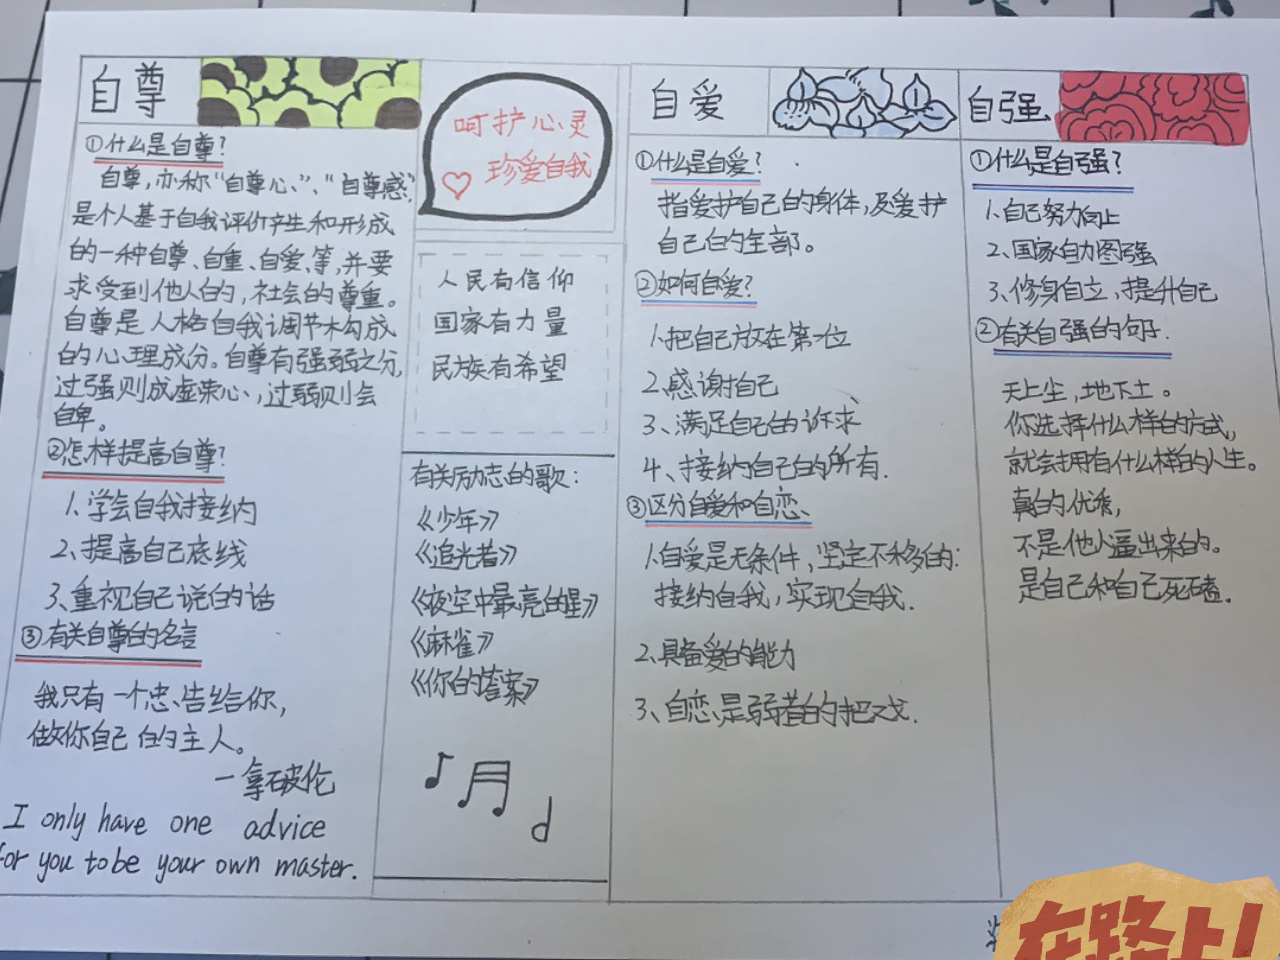 自尊
①什么是自尊?
自尊,亦称“自尊心、”、“自尊感”,
是个人基于自我评价产生和形成
的一种自尊、自重、自爱、等,并要
求受到他人的,社会的尊重。
自尊是人格自我调节木勾成
的心理成分。自尊有强弱之分,
过强则成虚荣心、,过弱则会
自卑。
②怎样提高自尊?
1.学会自我接纳
2、提高自己底线
3、重视自己说的话
③有关自尊的名言
我只有一个忠、告给你,
做你自己的主人。
一拿破伦
I only have one advice
for you to be your own master.
呵护心灵
珍爱自我
人民有信仰
国家有力量
民族有希望
有关励志的歌:
《少年》
《追光者》
《夜空中最亮的星》
《麻雀》
《你的答案》
自爱
①什么是自爱?
指爱护自己的身体,及爱护
自己的全部。
②如何自爱?
1.把自己放在第一位
2.感谢自己
3、满足自己的诉求
4、接纳自己的所有.
③区分自爱和自恋、
1.自爱是无条件,坚定不移的:
接纳自我,实现自我.
2、具备爱的能力
3、自恋是弱者的把戏.
自强
①什么是自强?
1.自己努力向上
2、国家自力图强
3、修身自立,提升自己
②有关自强的句子.
天上尘,地下土。
你选择什么样的方式,
就会拥有什么样的人生。
真的优秀,
不是他人逼出来的。
是自己和自己死磕.
在路上!